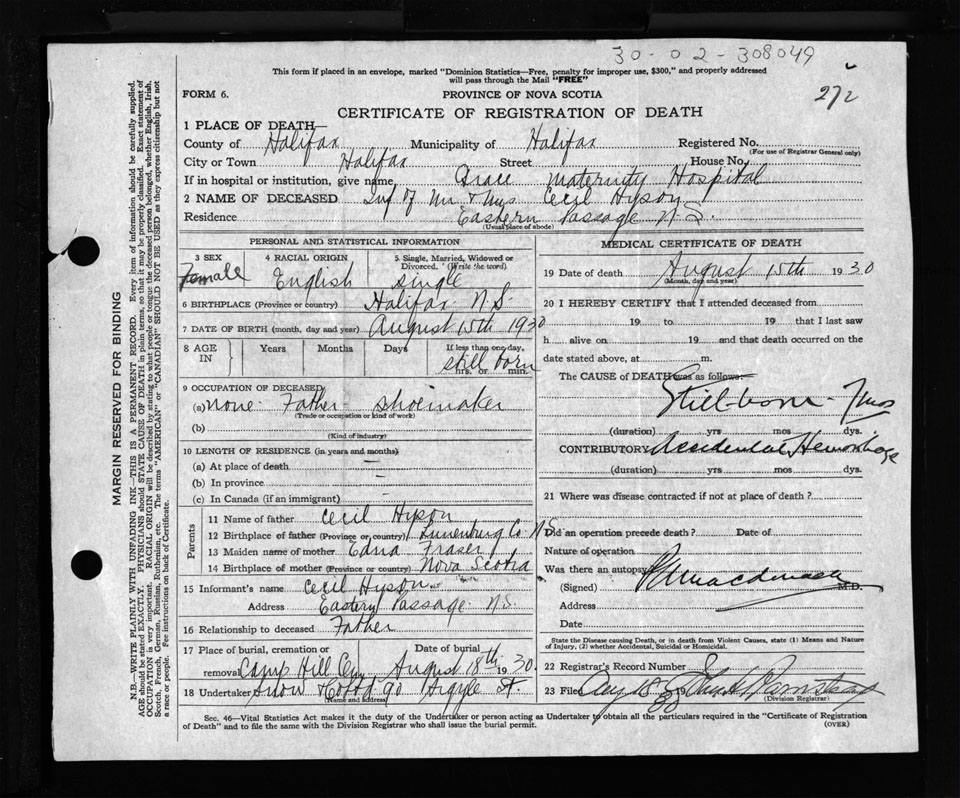 30-02-308049
272
This form if placed in an envelope, marked "Dominion Statistics—Free, penalty for improper use, $300," and properly addressed
will pass through the Mail "FREE"
FORM 6.
PROVINCE OF NOVA SCOTIA
CERTIFICATE OF REGISTRATION OF DEATH
1 PLACE OF DEATH—
County of Halifax Municipality of Halifax Registered No.
(For use of Registrar General only)
City or Town Halifax Street House No.
If in hospital or institution, give name Grace Maternity Hospital
2 NAME OF DECEASED Inf of Mr & Mrs Cecil Hyson
Residence Eastern Passage N.S.
(Usual place of abode)
PERSONAL AND STATISTICAL INFORMATION
3 SEX
Female
4 RACIAL ORIGIN
English
5 Single, Married, Widowed or
Divorced. (Write the word)
Single
6 BIRTHPLACE (Province or country) Halifax N.S.
7 DATE OF BIRTH (month, day and year) August 15th 1930
8 AGE
IN
Years
Months
Days
If less than one day,
still born
hrs. or min.
9 OCCUPATION OF DECEASED
(a) None. Father - Shoemaker
(Trade of occupation or kind of work)
(b)
(Kind of industry)
10 LENGTH OF RESIDENCE (in years and months)
(a) At place of death —
(b) In province —
(c) In Canada (if an immigrant)
Parents
11 Name of father Cecil Hyson
12 Birthplace of father (Province or country) Lunenburg Co N.S.
13 Maiden name of mother Edna Fraser
14 Birthplace of mother (Province or country) Nova Scotia
15 Informant's name Cecil Hyson
Address Eastern Passage N.S.
16 Relationship to deceased Father
17 Place of burial, cremation or
removal Camp Hill Cem
Date of burial
August 18th 1930.
18 Undertaker Snow & Co 90 Argyle St.
(Name and address)
MEDICAL CERTIFICATE OF DEATH
19 Date of death August 15th 1930
(Month, day and year)
20 I HEREBY CERTIFY that I attended deceased from
19 to 19 that I last saw
h alive on 19 and that death occurred on the
date stated above, at m.
The CAUSE of DEATH was as follows:
Still-born - 7 mos
(duration) yrs mos dys.
CONTRIBUTORY Accidental Hemorrhage
(duration) yrs mos dys.
21 Where was disease contracted if not at place of death?
Did an operation precede death? Date of
Nature of operation
Was there an autopsy
(Signed) M.D.
Address
Date
State the Disease causing Death, or in death from Violent Causes, state (1) Means and Nature
of Injury, (2) whether Accidental, Suicidal or Homicidal.
22 Registrar's Record Number
23 Filed Aug 18 19 30
(Division Registrar)
Sec. 46—Vital Statistics Act makes it the duty of the Undertaker or person acting as Undertaker to obtain all the particulars required in the "Certificate of Registration
of Death" and to file the same with the Division Registrar who shall issue the burial permit.
(OVER)
MARGIN RESERVED FOR BINDING
N.B.—WRITE PLAINLY WITH UNFADING INK—THIS IS A PERMANENT RECORD. Every item of information should be carefully supplied.
AGE should be stated EXACTLY. PHYSICIANS should STATE CAUSE OF DEATH in plain terms, so that it may be properly classified. Exact statement of
OCCUPATION is very important. RACIAL ORIGIN will be described by stating to what people or tongue the deceased person belonged, whether English, Irish,
Scotch, French, German, Russian, Ruthenian, etc. The terms "AMERICAN" or "CANADIAN" SHOULD NOT BE USED as they express citizenship but not
a race or people. See instructions on back of Certificate.